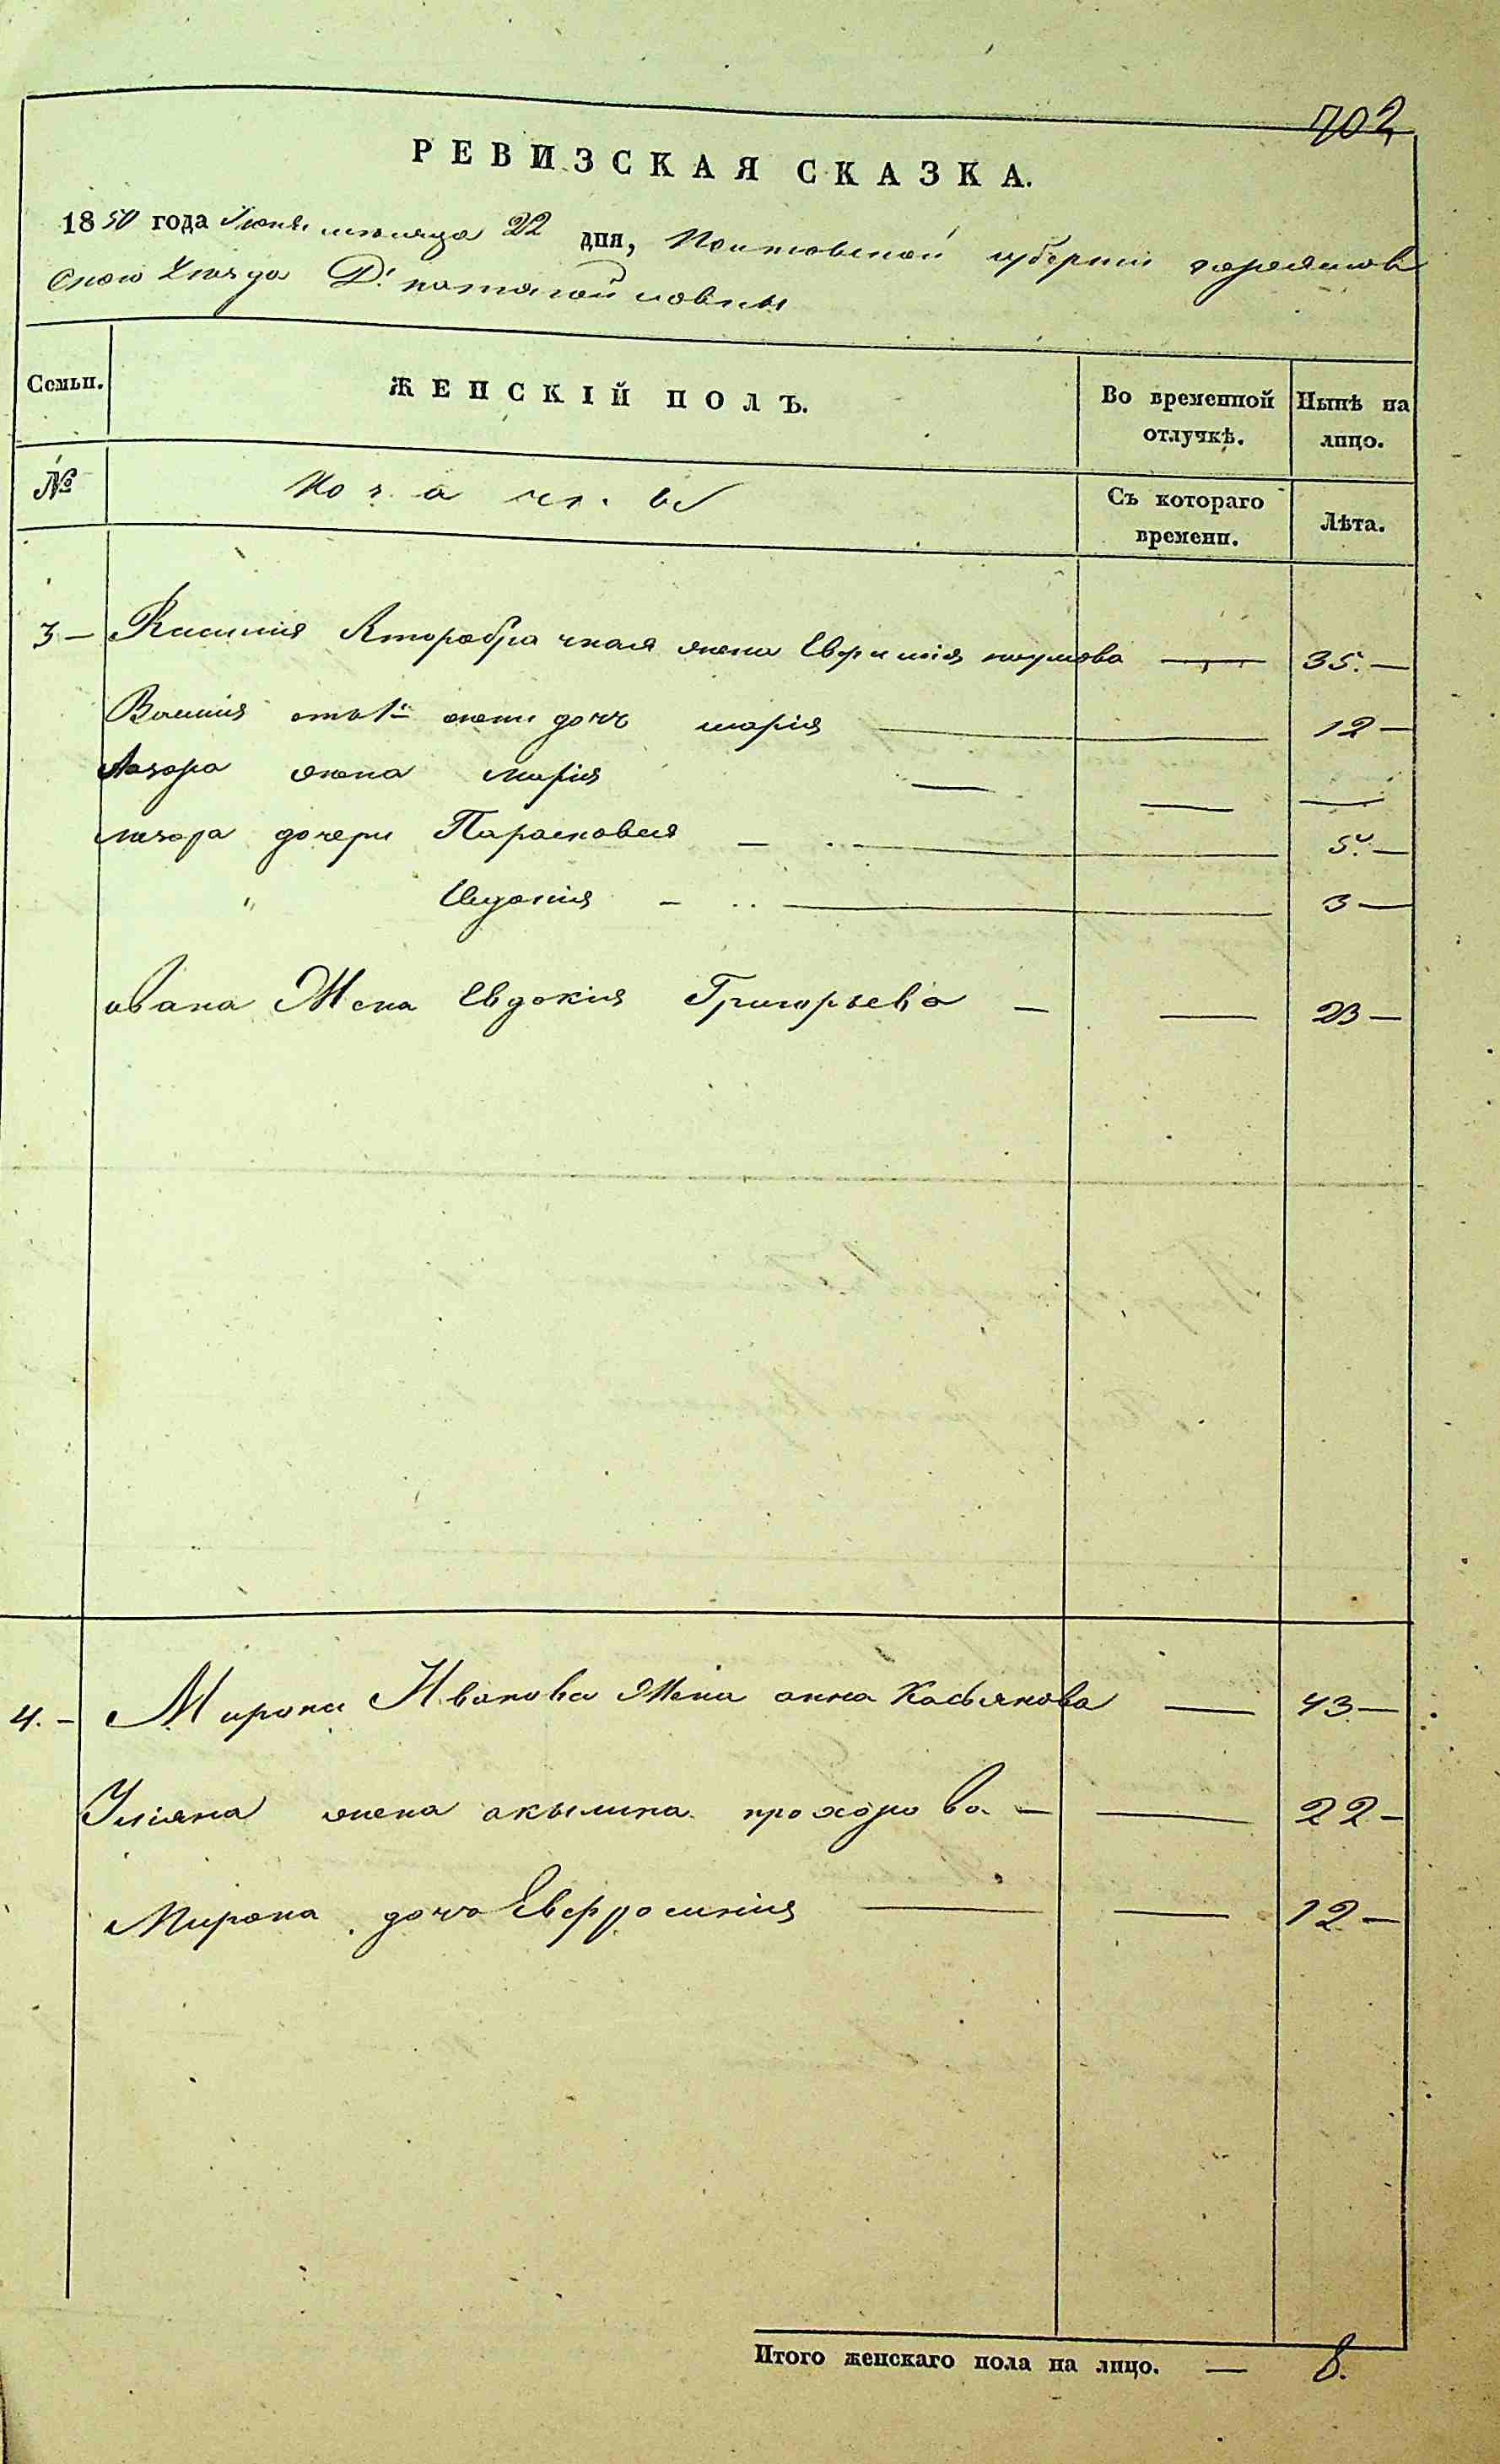 702
РЕВИЗСКАЯ СКАЗКА.
1850 года Июня месяца 22 дня, Полтовской губернии
Уезда Д.
Семьи. ЖЕНСКІЙ ПОЛЪ. Во временной отлучкѣ. Нынѣ на лицо.
№ Съ котораго времени. Лѣта.
3 — Василия Вторабрачная жена Евфимия наумова — 35. —
Василия отъ 1й жены дочь мария — 12 —
Лазора жена мария — — —
лазора дочери Парасковия — 5. —
" Евдокия — 3 —
ивана Жена Евдокия Григорьева — — 23 —
4. — Мирона Иванова Жена анна Касьянова — 43 —
Улияна жена акылина прохорова. — — 22 —
Мирона дочь Евфросиния — — 12 —
Итого женскаго пола на лицо. — 8.